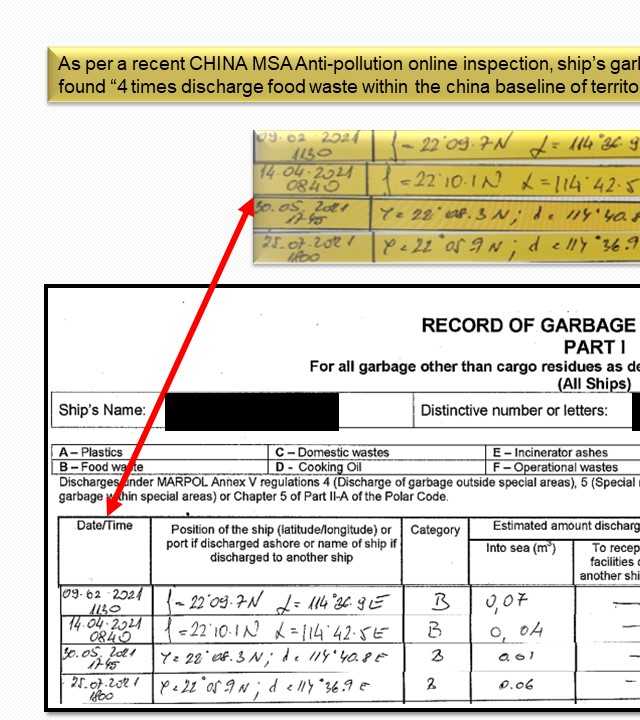 As per a recent CHINA MSA Anti-pollution online inspection, ship's garb
found “4 times discharge food waste within the china baseline of territo
09.02 2021
1130
φ = 22°09.7N λ = 114°36.9
14.04.2021
0840
φ = 22°10.1N λ = 114°42.5
30.05.2021
1745
φ = 22°08.3N; λ = 114°40.8
25.07.2021
1800
φ = 22°05.9N; λ = 114°36.9
RECORD OF GARBAGE
PART I
For all garbage other than cargo residues as de
(All Ships)
Ship's Name: Distinctive number or letters:
A – Plastics C – Domestic wastes E – Incinerator ashes
B – Food waste D - Cooking Oil F – Operational wastes
Discharges under MARPOL Annex V regulations 4 (Discharge of garbage outside special areas), 5 (Special
garbage within special areas) or Chapter 5 of Part II-A of the Polar Code.
Date/Time
Position of the ship (latitude/longitude) or
port if discharged ashore or name of ship if
discharged to another ship
Category
Estimated amount discharg
Into sea (m³)
To recep
facilities
another shi
09.02 2021
1130
φ = 22°09.7N λ = 114°36.9E B 0,07 —
14.04.2021
0840
φ = 22°10.1N λ = 114°42.5E B 0,04 —
30.05.2021
1745
φ = 22°08.3N; λ = 114°40.8E B 0.01 —
25.07.2021
1800
φ = 22°05.9N; λ = 114°36.9E B 0.06 —